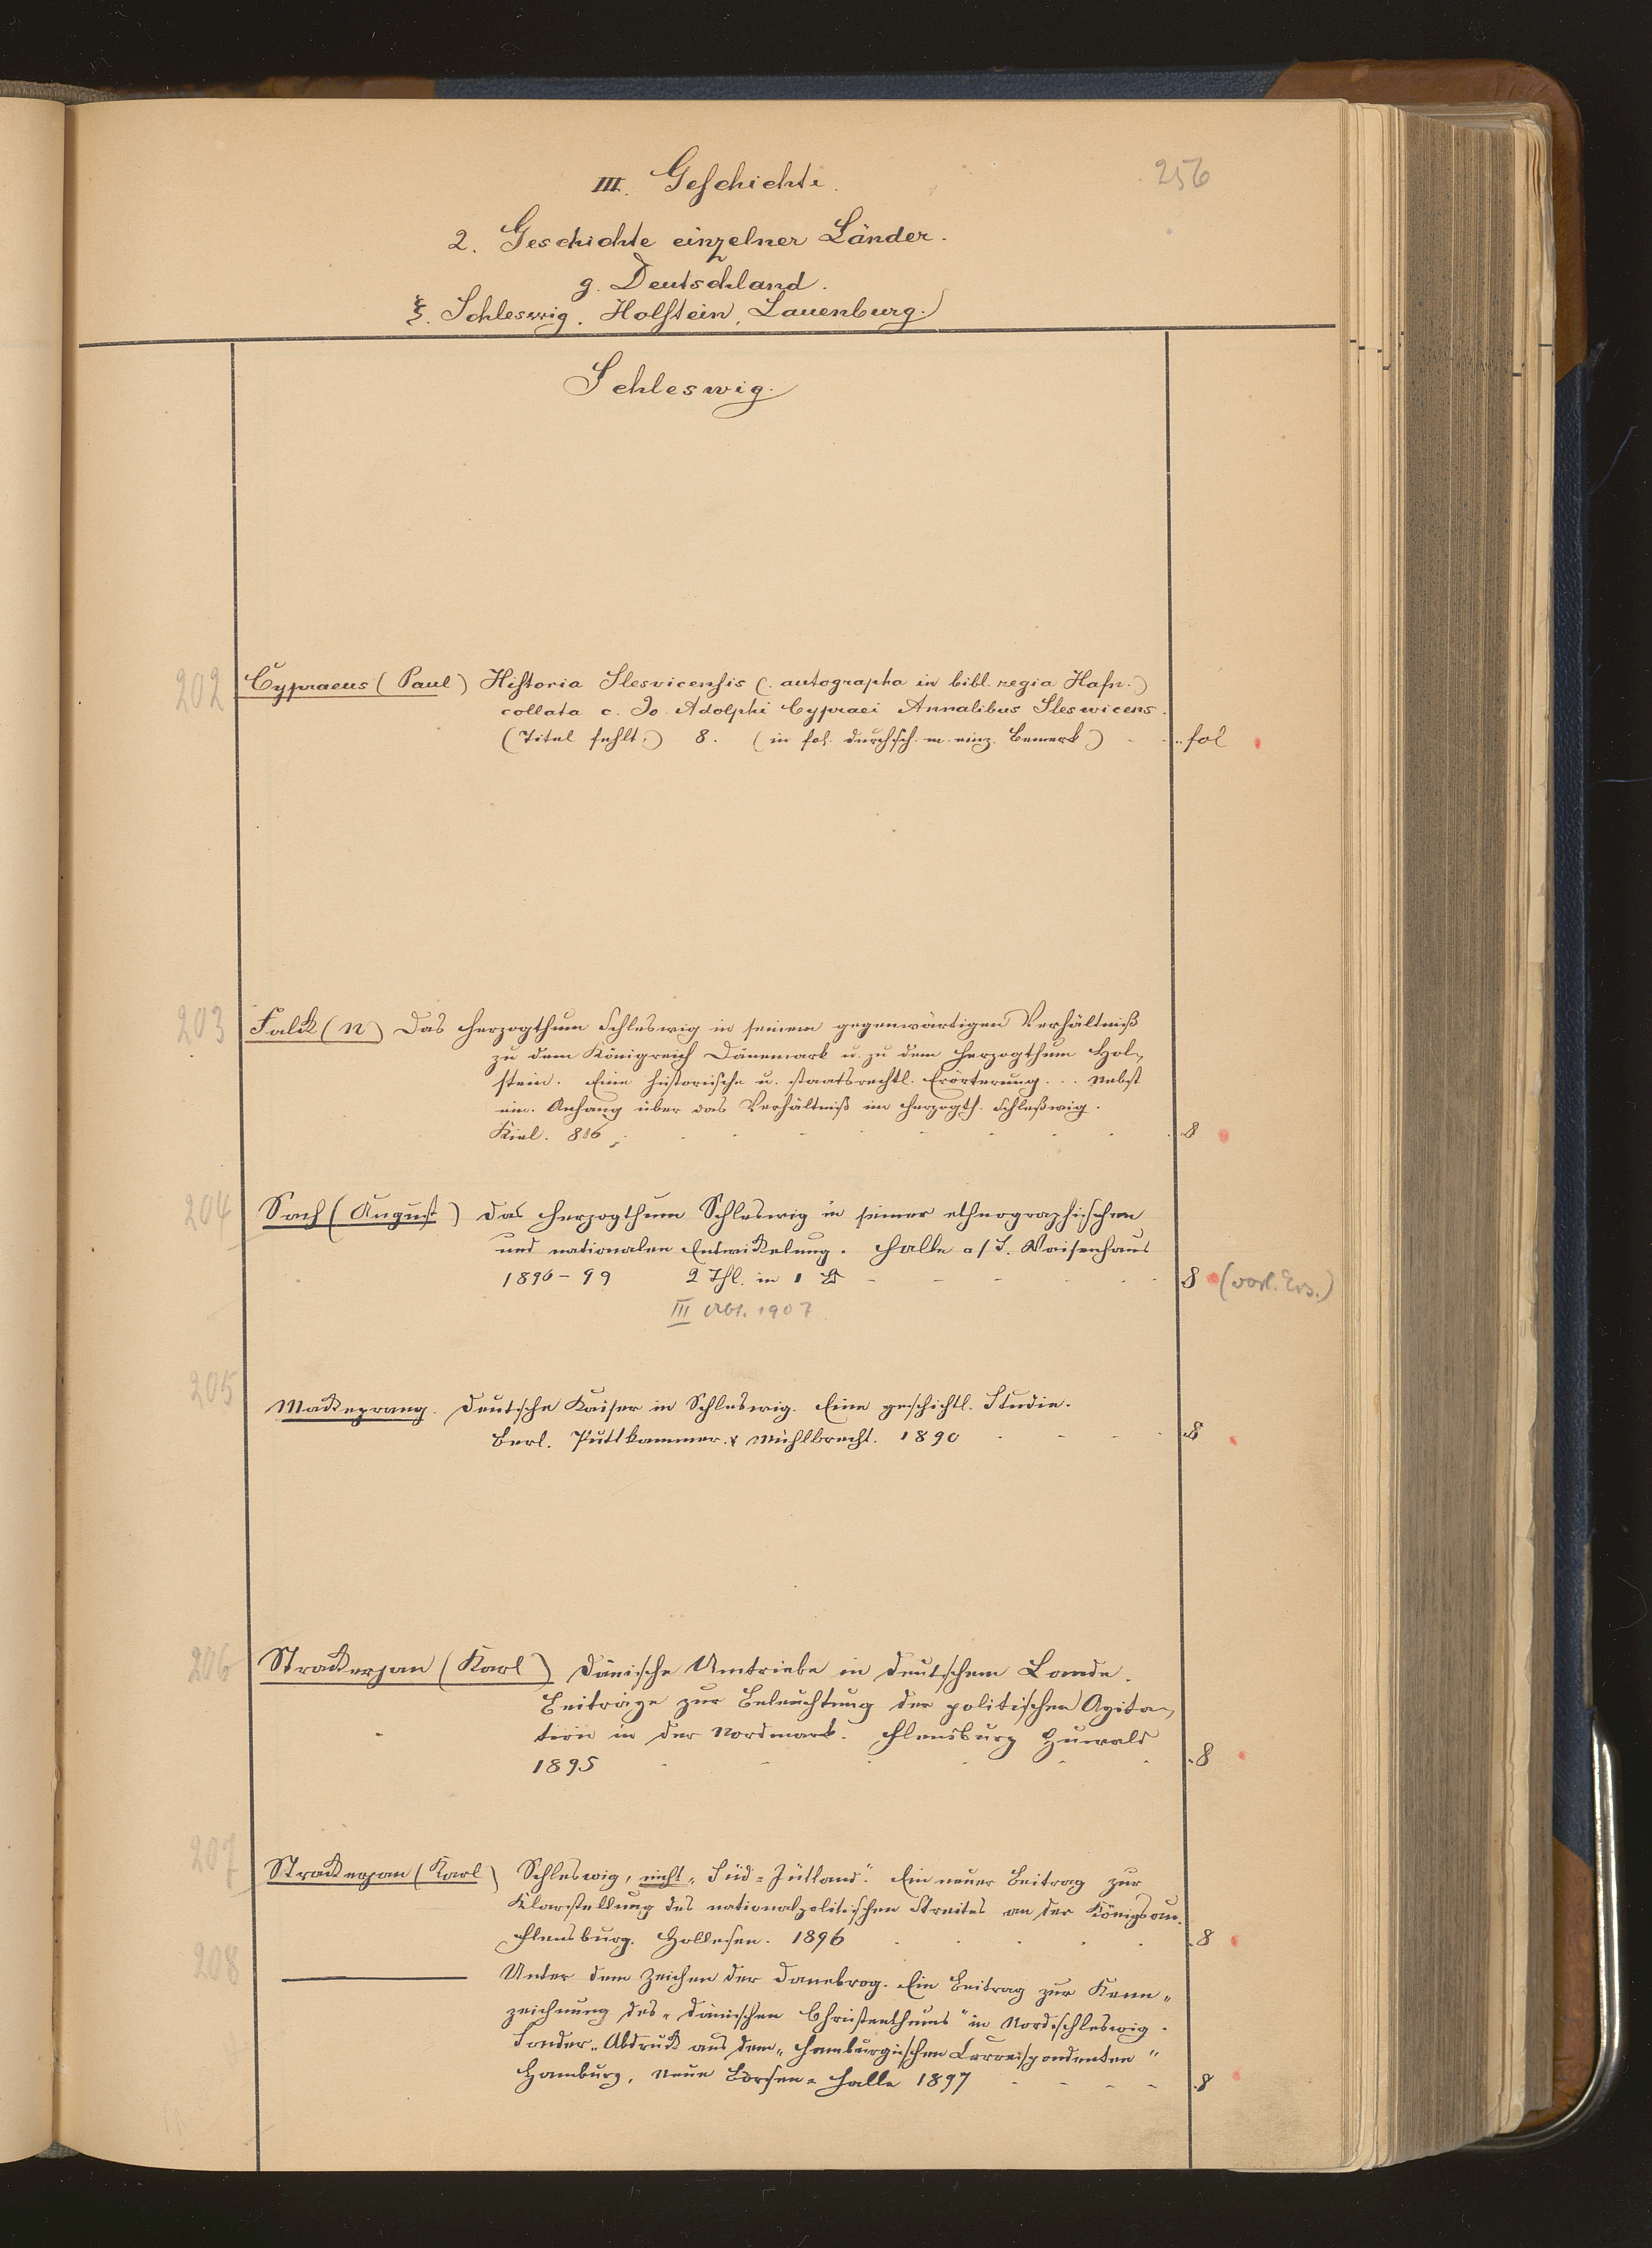 256
III. Geschichte.
2. Geschichte einzelner Länder.
g. Deutschland.
ξ. Schleswig. Holstein, Lauenburg.
Schleswig.
202
Cypraeus (Paul) Historia Slesvicensis (: autographa in bibl. regia Hafn.)
collata c. Jo. Adolphi Cypraei Annalibus Sleswicens.
(Titel fehlt.) 8. (in fol. durchsch. m. einz. Bemerk.) fol
203
Falck (N) Das Herzogthum Schleswig in seinem gegenwärtigen Verhältniß
zu dem Königreich Dänemark u. zu dem Herzogthum Hol-
stein. Eine historische u. staatsrechtl. Erörterung... Nebst
ein. Anhang über das Verhältniß im Herzogth. Schleßwig.
Kiel. 816. 8
204
Sach (August) Das Herzogthum Schleswig in seiner ethnographischen
und nationalen Entwickelung. Halle a/S. Waisenhaus
1896-99 2 Thl. in 1 Bd 8 (vorl. Ers.)
III Abt. 1907
205
Mackeprang. Deutsche Kaiser in Schleswig. Eine geschichtl. Studie.
Berl. Puttkammer & Mühlbrecht. 1890 8
206
Strackerjan (Karl) Dänische Umtriebe in deutschem Lande.
Beiträge zur Beleuchtung der politischen Agita-
tion in der Nordmark. Flensburg Huwald
1895 8
207
Strackerjan (Karl) Schleswig, nicht „Süd=Jütland“. Ein neuer Beitrag zur
Klarstellung des nationalpolitischen Streites an der Königsau.
Flensburg. Hollesen. 1896 8
208
Unter dem Zeichen der Danebrog. Ein Beitrag zur Kenn-
zeichnung des „dänischen Christenthums“ in Nordschleswig.
Sonder-Abdruck aus dem „Hamburgischen Correspondenten“
Hamburg, Neue Börsen=Halle 1897 8